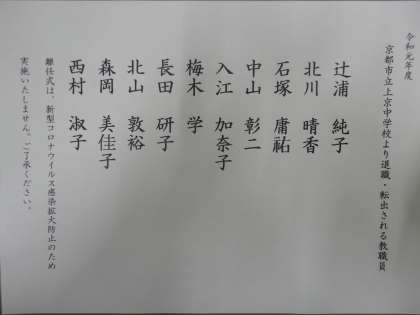 令和元年度
京都市立上京中学校より退職・転出される教職員
辻浦 純子
北川 晴香
石塚 庸祐
中山 彰二
入江 加奈子
梅木 学
長田 研子
北山 敦裕
森岡 美佳子
西村 淑子
離任式は、新型コロナウイルス感染拡大防止のため
実施いたしません。ご了承ください。